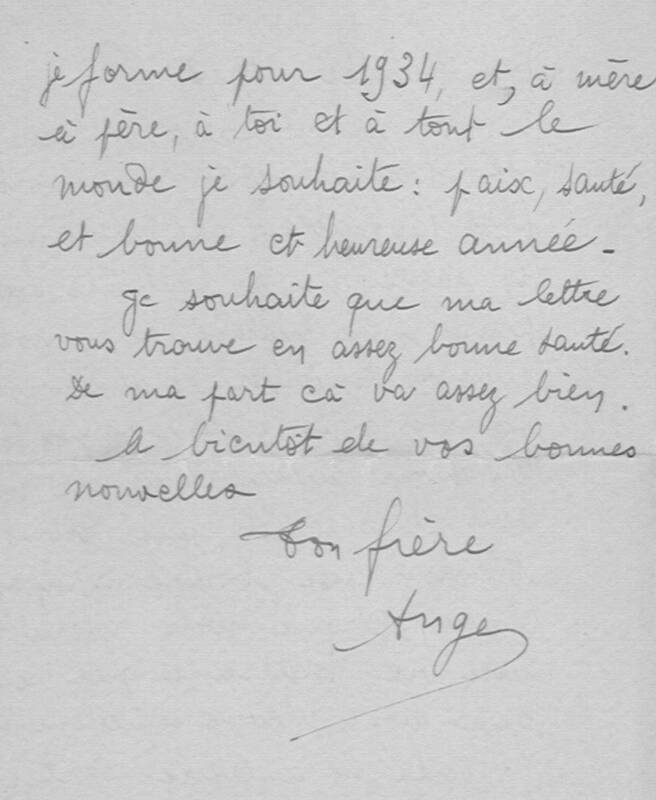 je forme pour 1934, et, à mère
à père, à toi et à tout le
monde je souhaite : paix, santé,
et bonne et heureuse année -
Je souhaite que ma lettre
vous trouve en assez bonne santé.
De ma part ça va assez bien.
A bientôt de vos bonnes
nouvelles
Ton frère
Ange